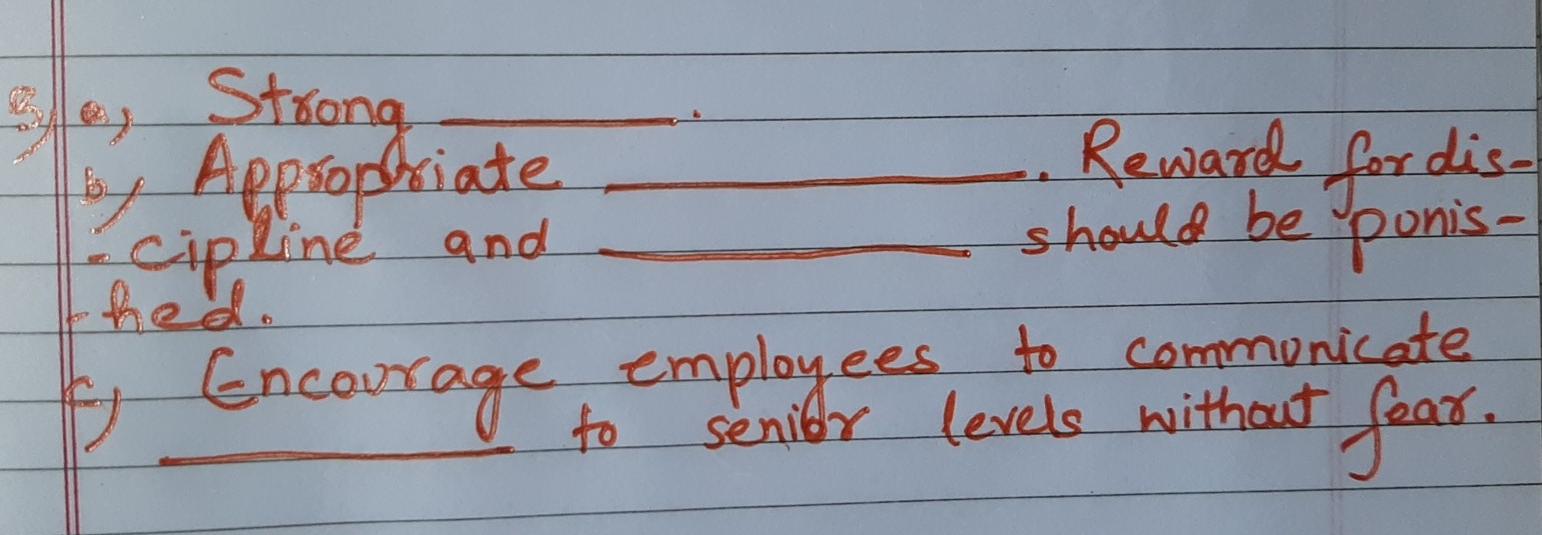 3) a) Strong ________.
b) Appropriate ________. Reward for dis-
-cipline and ________ should be ponis-
-hed.
c) Encourage employees to communicate
________ to senior levels without fear.